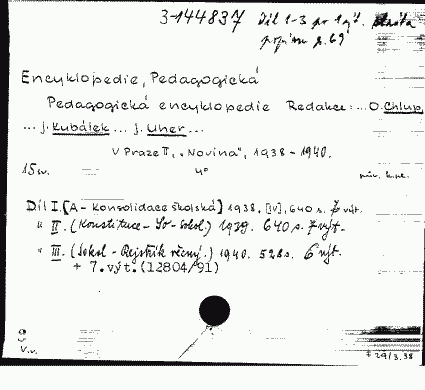 3-144837 Díl 1-3 po 1 výt.
Encyklopedie, Pedagogická
Pedagogická encyklopedie Redakce: ... O. Chlup,
... J. Kubálek ... J. Uher ...
V Praze II, „Novina", 1938 - 1940.
15 sv. 4°
Díl I. [A - Konsolidace školská] 1938. [IV], 640 s. 7 výt.
" II. (Konstituce - So- sokol.) 1939. 640 s. 7 výt.
" III. (Sokol - Rejstřík věcný.) 1940. 528 s. 6 výt.
+ 7.výt.(12804/91)
V.v.
† 29/3.38